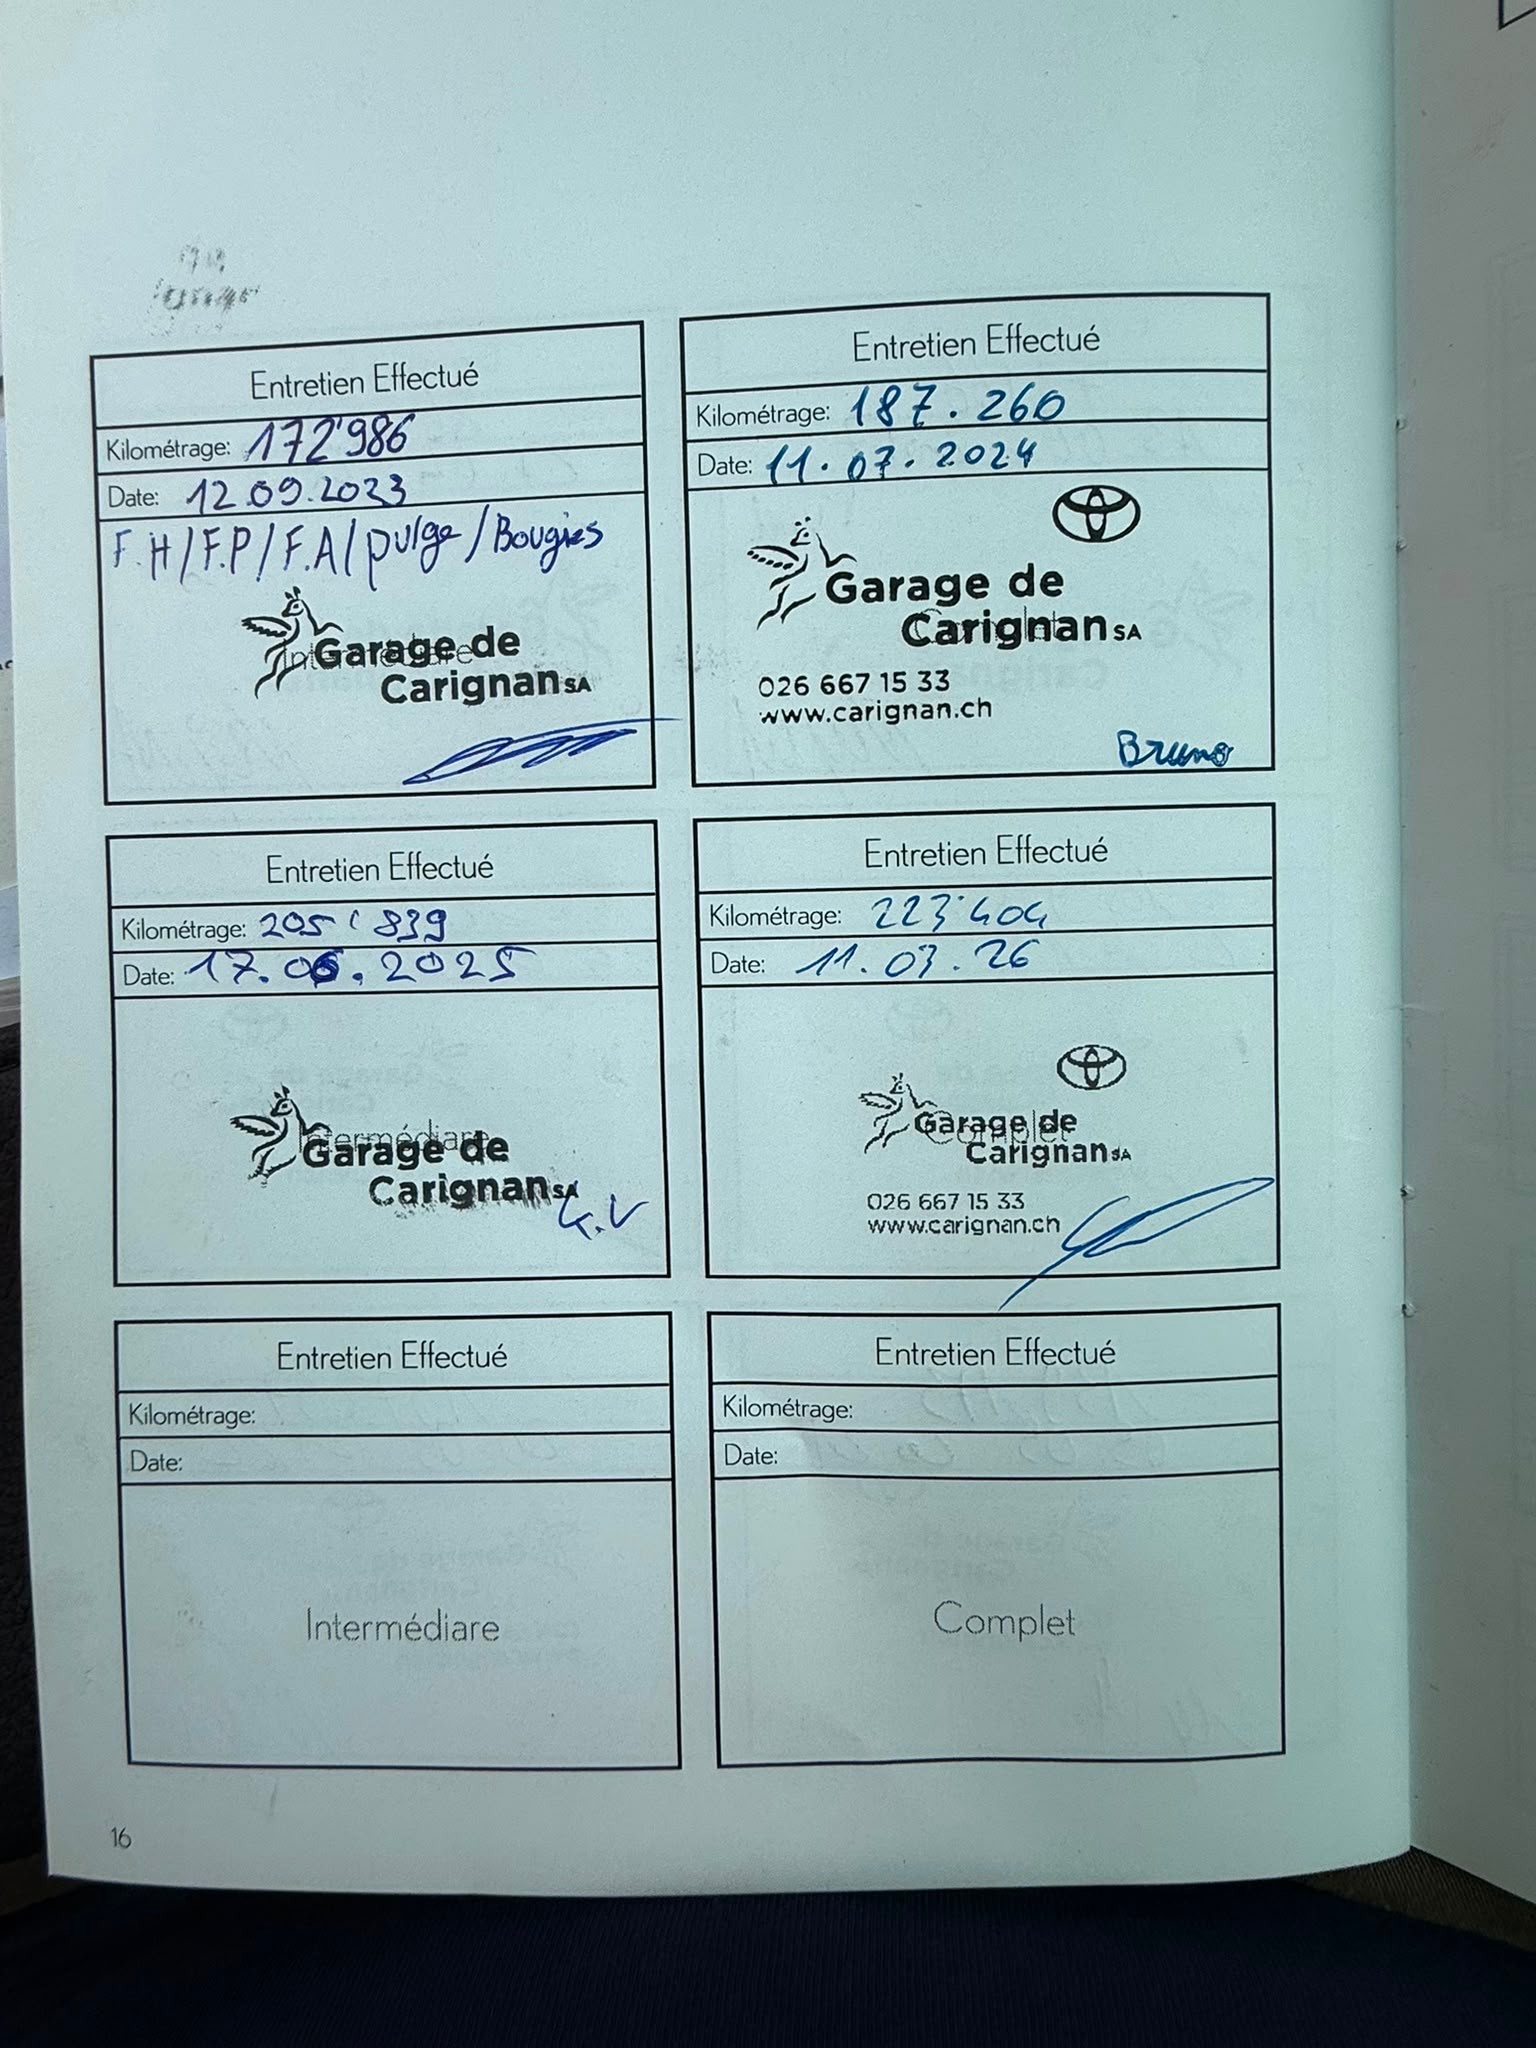 Entretien Effectué
Kilométrage: 172'986
Date: 12.09.2023
F.H/F.P/F.A/pulge/Bougies
Intermédiare
Garage de
Carignan SA
Entretien Effectué
Kilométrage: 187.260
Date: 11.07.2024
Garage de
Carignan SA
Complet
026 667 15 33
www.carignan.ch
Bruno
Entretien Effectué
Kilométrage: 205'839
Date: 17.06.2025
Intermédiare
Garage de
Carignan SA
Entretien Effectué
Kilométrage: 223'404
Date: 11.03.26
Garage de
Complet
Carignan SA
026 667 15 33
www.carignan.ch
Entretien Effectué
Kilométrage:
Date:
Intermédiare
Entretien Effectué
Kilométrage:
Date:
Complet
16